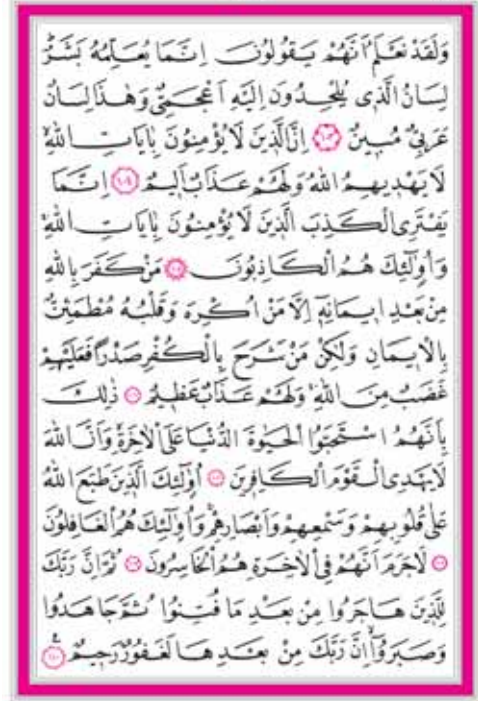 وَلَقَدْ نَعْلَمُ اَنَّهُمْ يَقُولُونَ اِنَّمَا يُعَلِّمُهُ بَشَرٌ
لِسَانُ الَّذٖى يُلْحِدُونَ اِلَيْهِ اَعْجَمِىٌّ وَهٰذَا لِسَانٌ
عَرَبِىٌّ مُبٖينٌ اِنَّ الَّذٖينَ لَا يُؤْمِنُونَ بِاٰيَاتِ اللّٰهِ
لَا يَهْدٖيهِمُ اللّٰهُ وَلَهُمْ عَذَابٌ اَلٖيمٌ اِنَّمَا
يَفْتَرِى الْكَذِبَ الَّذٖينَ لَا يُؤْمِنُونَ بِاٰيَاتِ اللّٰهِ
وَاُولٰٓئِكَ هُمُ الْكَاذِبُونَ مَنْ كَفَرَ بِاللّٰهِ
مِنْ بَعْدِ اٖيمَانِهٖٓ اِلَّا مَنْ اُكْرِهَ وَقَلْبُهُ مُطْمَئِنٌّ
بِالْاٖيمَانِ وَلٰكِنْ مَنْ شَرَحَ بِالْكُفْرِ صَدْرًا فَعَلَيْهِمْ
غَضَبٌ مِنَ اللّٰهِ وَلَهُمْ عَذَابٌ عَظٖيمٌ ذٰلِكَ
بِاَنَّهُمُ اسْتَحَبُّوا الْحَيٰوةَ الدُّنْيَا عَلَى الْاٰخِرَةِ وَاَنَّ اللّٰهَ
لَا يَهْدِى الْقَوْمَ الْكَافِرٖينَ اُولٰٓئِكَ الَّذٖينَ طَبَعَ اللّٰهُ
عَلٰى قُلُوبِهِمْ وَسَمْعِهِمْ وَاَبْصَارِهِمْ وَاُولٰٓئِكَ هُمُ الْغَافِلُونَ
لَا جَرَمَ اَنَّهُمْ فِى الْاٰخِرَةِ هُمُ الْخَاسِرُونَ ثُمَّ اِنَّ رَبَّكَ
لِلَّذٖينَ هَاجَرُوا مِنْ بَعْدِ مَا فُتِنُوا ثُمَّ جَاهَدُوا
وَصَبَرُوا اِنَّ رَبَّكَ مِنْ بَعْدِهَا لَغَفُورٌ رَحٖيمٌ